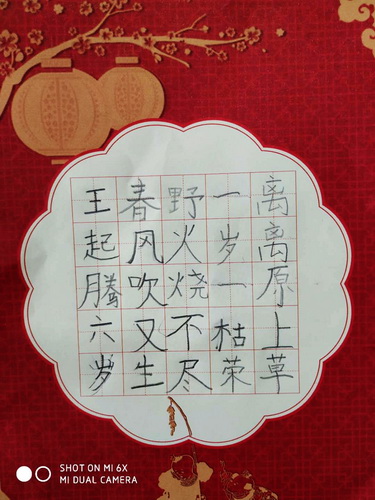 离离原上草
一岁一枯荣
野火烧不尽
春风吹又生
王起腾六岁
SHOT ON MI 6X
MI DUAL CAMERA